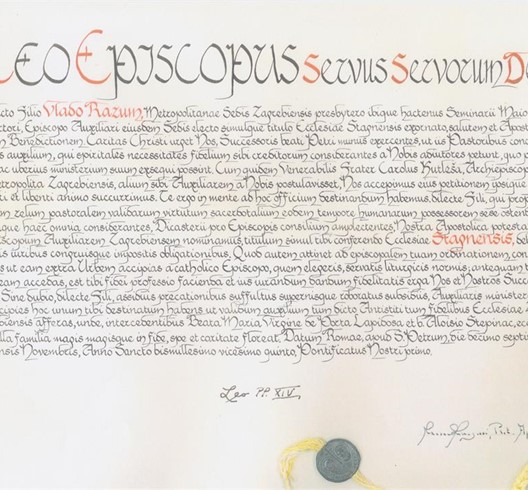 LEO EPISCOPUS Servus Servorum De
cto Filio Vlado Razum, Metropolitanae Sedis Zagrebiensis presbytero ibique hactenus Seminarii Maio
ctori, Episcopo Auxiliari eiusdem Sedis electo simulque titulo Ecclesiae Stagnensis exornato, salutem et Apost
m Benedictionem. Caritas Christi urget Nos, Successoris beati Petri munus exercentes, ut us Pastoribus cons
us auxilium, qui spiritales necessitates fidelium sibi creditorum considerantes a Nobis adiutores petunt, quo
a uberius ministerium suum exsequi possint. Cum quidem Venerabilis Frater Carolus Kutleša, Archiepiscop
etropolita Zagrebiensis, alium sibi Auxiliarem a Nobis postulavisset, Nos accepimus eius petitionem ipsiqu
o et libenti animo succurrimus. Te ergo in mente ad hoc officium destinandum habemus, dilecte Fili, qui prop
m zelum pastoralem validarum virtutum sacerdotalium eodem tempore humanarum possessorem sese osten
que haec omnia considerantes, Dicasterii pro Episcopis consilium amplectentes, Nostra Apostolica potesta
iscopum Auxiliarem Zagrebiensem nominamus, titulum simul tibi conferendo Ecclesiae Stagnensis, d
is iuribus congruisque impositis obligationibus. Quod autem attinet ad episcopalem tuam ordinationem, con
us ut eam extra Urbem accipias a catholico Episcopo, quem elegeris, servatis liturgicis normis; antequam
eam accedas, est tibi fidei professio facienda et ius iurandum dandum fidelitatis erga Nos et Nostros Succ
Sine dubio, dilecte Fili, assiduis precationibus suffultus supernisque roboratus subsidiis, Auxiliaris minister
cipies hoc unum tibi destinatum habens ut validum auxilium tum dicto Antistiti tum fidelibus Ecclesiae
biensis afferas, unde, intercedentibus Beata Maria Virgine de Porta Lapidosa et b. Aloisio Stepinac, ei
lla familia magis magisque in fide, spe et caritate floreat. Datum Romae, apud S. Petrum, die decimo septi
ensis Novembris, Anno Sancto bismillesimo vicesimo quinto, Pontificatus Nostri primo.
Leo PP. XIV